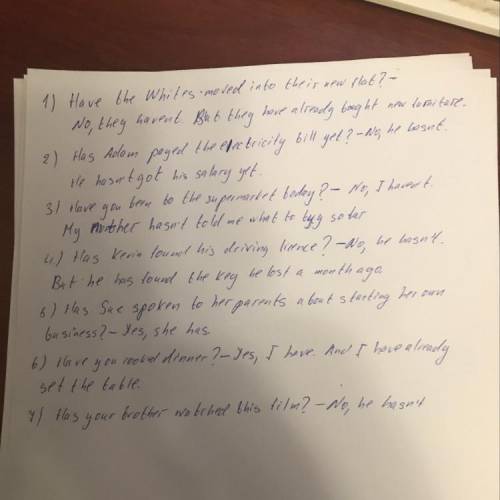 1) Have the Whites moved into their new flat? –
No, they havent. But they have already bought new furniture.
2) Has Adam payed the electricity bill yet? – No, he hasn't.
He hasn't got his salary yet.
3) Have you been to the supermarket today? – No, I haven't.
My mother hasn't told me what to buy so far
4) Has Kevin found his driving licence? – No, he hasn't.
But he has found the key he lost a month ago.
5) Has Sue spoken to her parents about starting her own
business? – Yes, she has.
6) Have you cooked dinner? – Yes, I have. And I have already
set the table.
7) Has your brother watched this film? – No, he hasn't